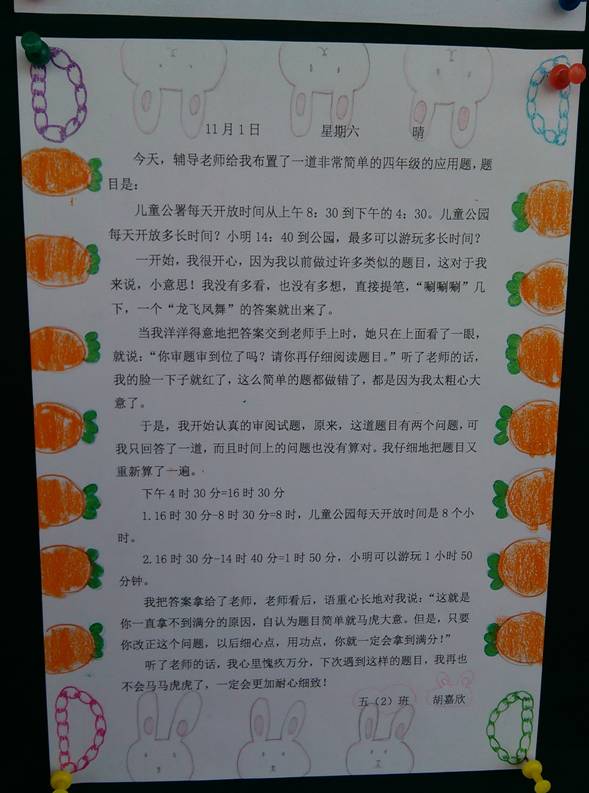 11月1日 星期六 晴
今天，辅导老师给我布置了一道非常简单的四年级的应用题，题
目是：
儿童公署每天开放时间从上午8：30到下午的4：30。儿童公园
每天开放多长时间？小明14：40到公园，最多可以游玩多长时间？
一开始，我很开心，因为我以前做过许多类似的题目，这对于我
来说，小意思！我没有多看，也没有多想，直接提笔，“唰唰唰”几
下，一个“龙飞凤舞”的答案就出来了。
当我洋洋得意地把答案交到老师手上时，她只在上面看了一眼，
就说：“你审题审到位了吗？请你再仔细阅读题目。”听了老师的话，
我的脸一下子就红了，这么简单的题都做错了，都是因为我太粗心大
意了。
于是，我开始认真的审阅试题，原来，这道题目有两个问题，可
我只回答了一道，而且时间上的问题也没有算对。我仔细地把题目又
重新算了一遍。
下午4时30分=16时30分
1.16时30分-8时30分=8时，儿童公园每天开放时间是8个小
时。
2.16时30分-14时40分=1时50分，小明可以游玩1小时50
分钟。
我把答案拿给了老师，老师看后，语重心长地对我说：“这就是
你一直拿不到满分的原因，自认为题目简单就马虎大意。但是，只要
你改正这个问题，以后细心点，用功点，你就一定会拿到满分！”
听了老师的话，我心里愧疚万分，下次遇到这样的题目，我再也
不会马马虎虎了，一定会更加耐心细致！
五（2）班 胡嘉欣